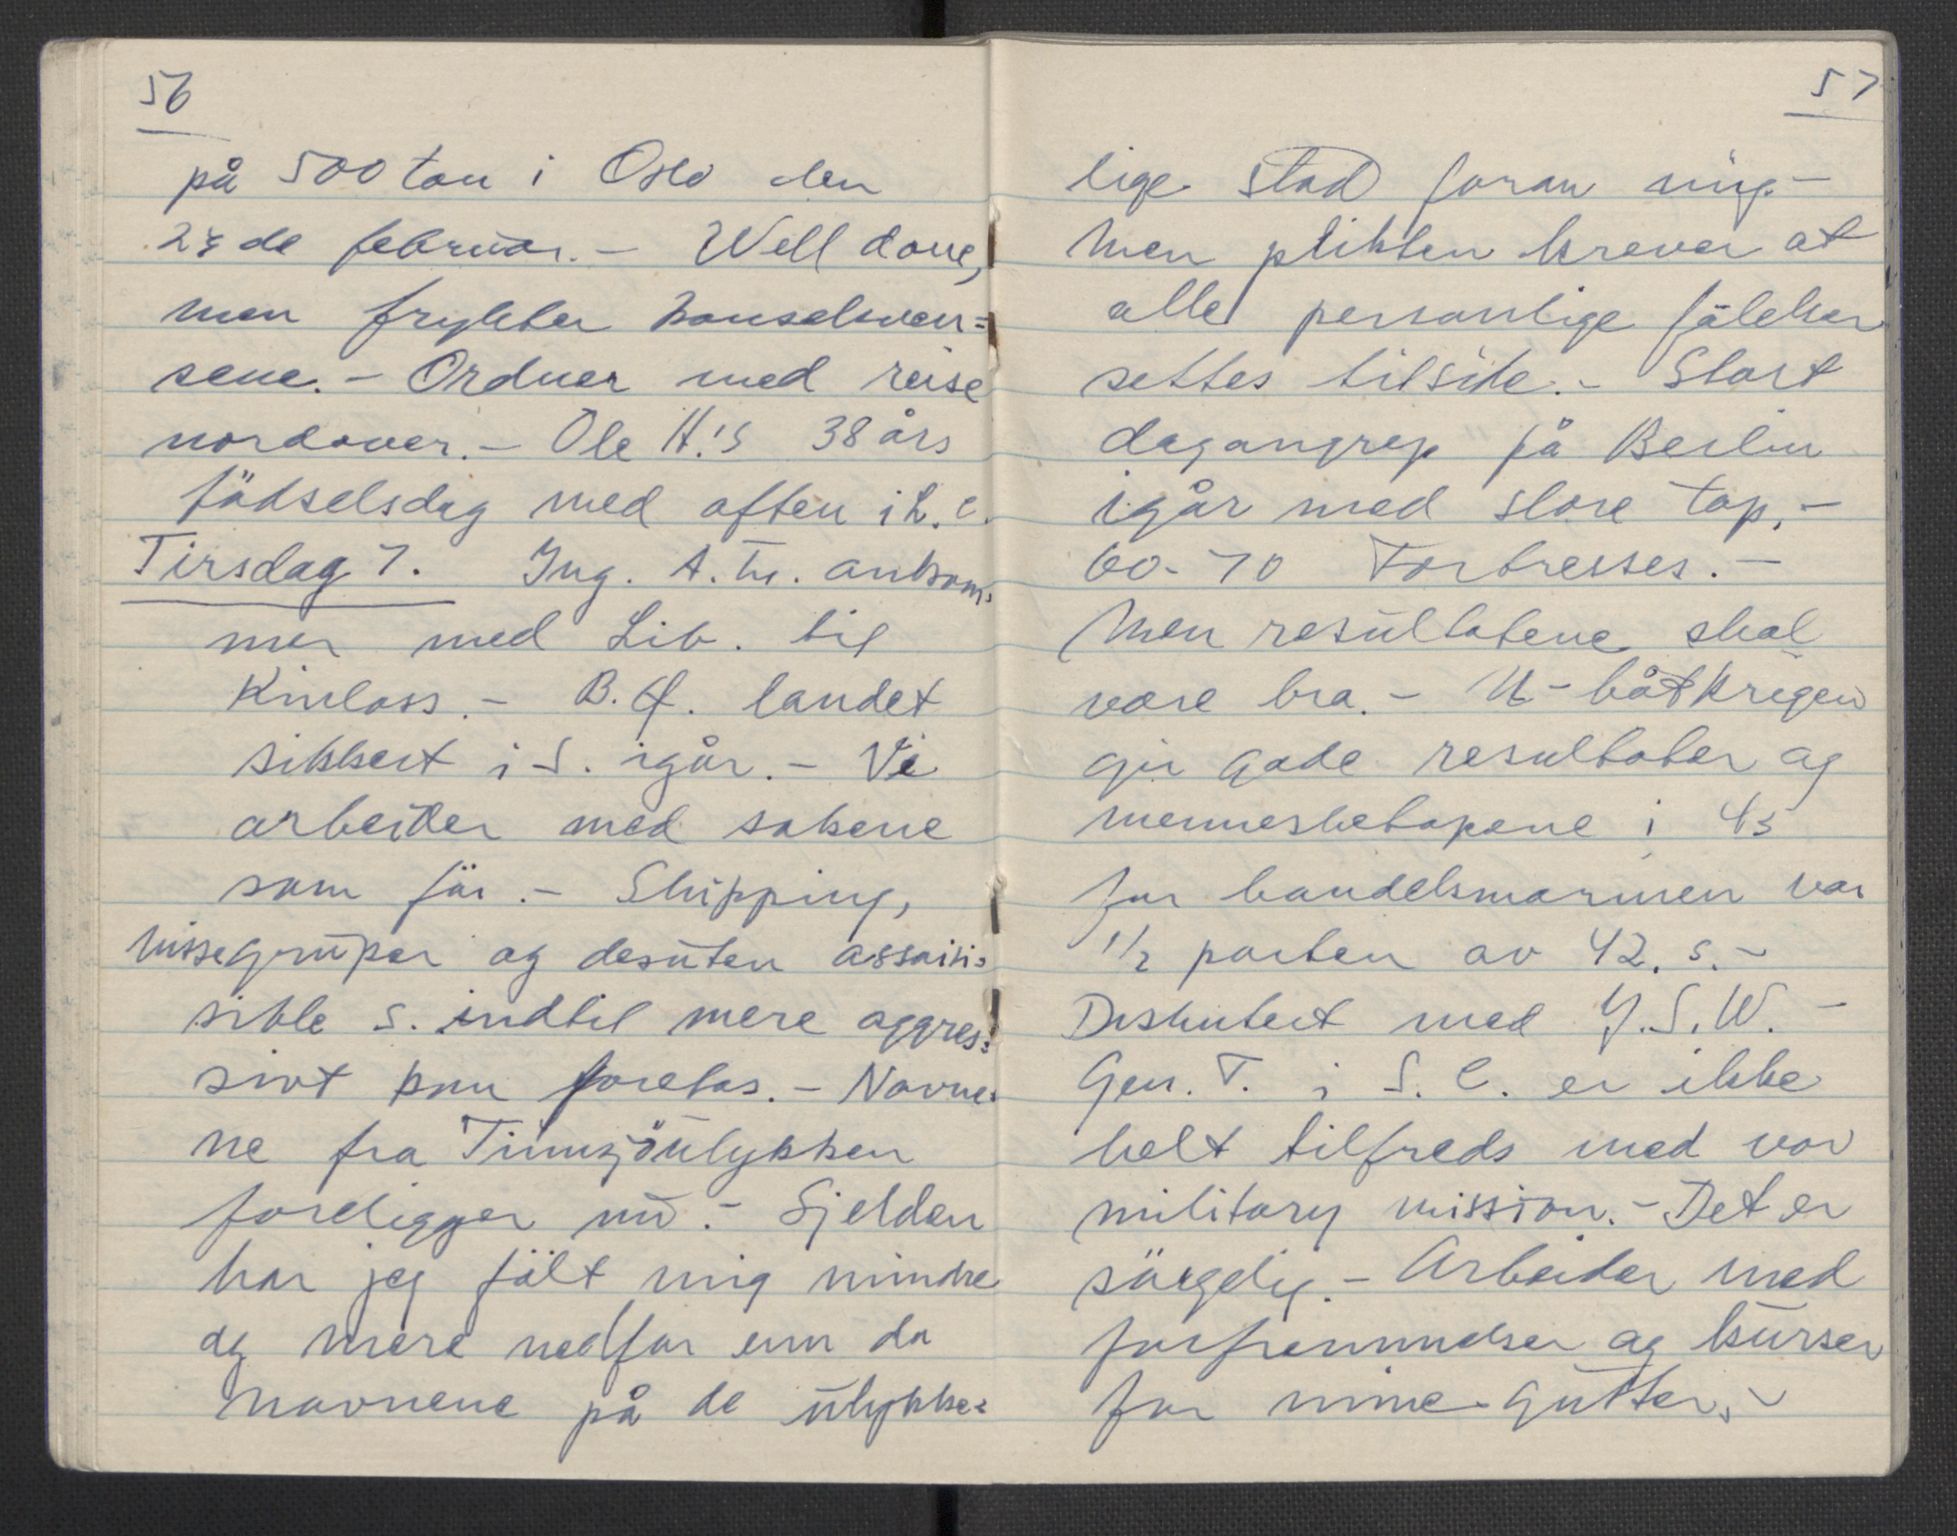 56
på 500 ton i Oslo den
de februar. - Well done,
men frykter konsekven=
sene. - Ordner med reise
nordover. - Ole H.'s 38 års
födselsdag med aften i L.C.
Tirsdag 7. Ing. A. Tr. ankom=
mer med Lib. til
Kinloss. - B.H. landet
sikkert i S. igår. - Vi
arbeider med sakene
som för. - Shipping,
nissegruper og desuten
sible S. indtil mere aggres=
sivt kan foretas. - Navne=
ne fra Tinnsjöulykken
foreligger nu. - Sjelden
har jeg fölt mig mindre
og mere nedfor enn da
navnene på de ulykke=
57
lige stod foran mig. -
Men plikten krever at
alle personlige fölelser
settes tilside. - Stort
dagangrep på Berlin
igår med store tap, -
60-70 Fortresses. -
Men resultatene skal
være bra. - U-båtkrigen
gir gode resultater og
mennesketapene i 43
for handelsmarinen var
1/2 parten av 42. s. -
Diskutert med J.S.W. -
Gen. T. i S.C. er ikke
helt tilfreds med vor
military mission. - Det er
sörgelig. - Arbeider med
forfremmelser og kurser
for mine gutter. -